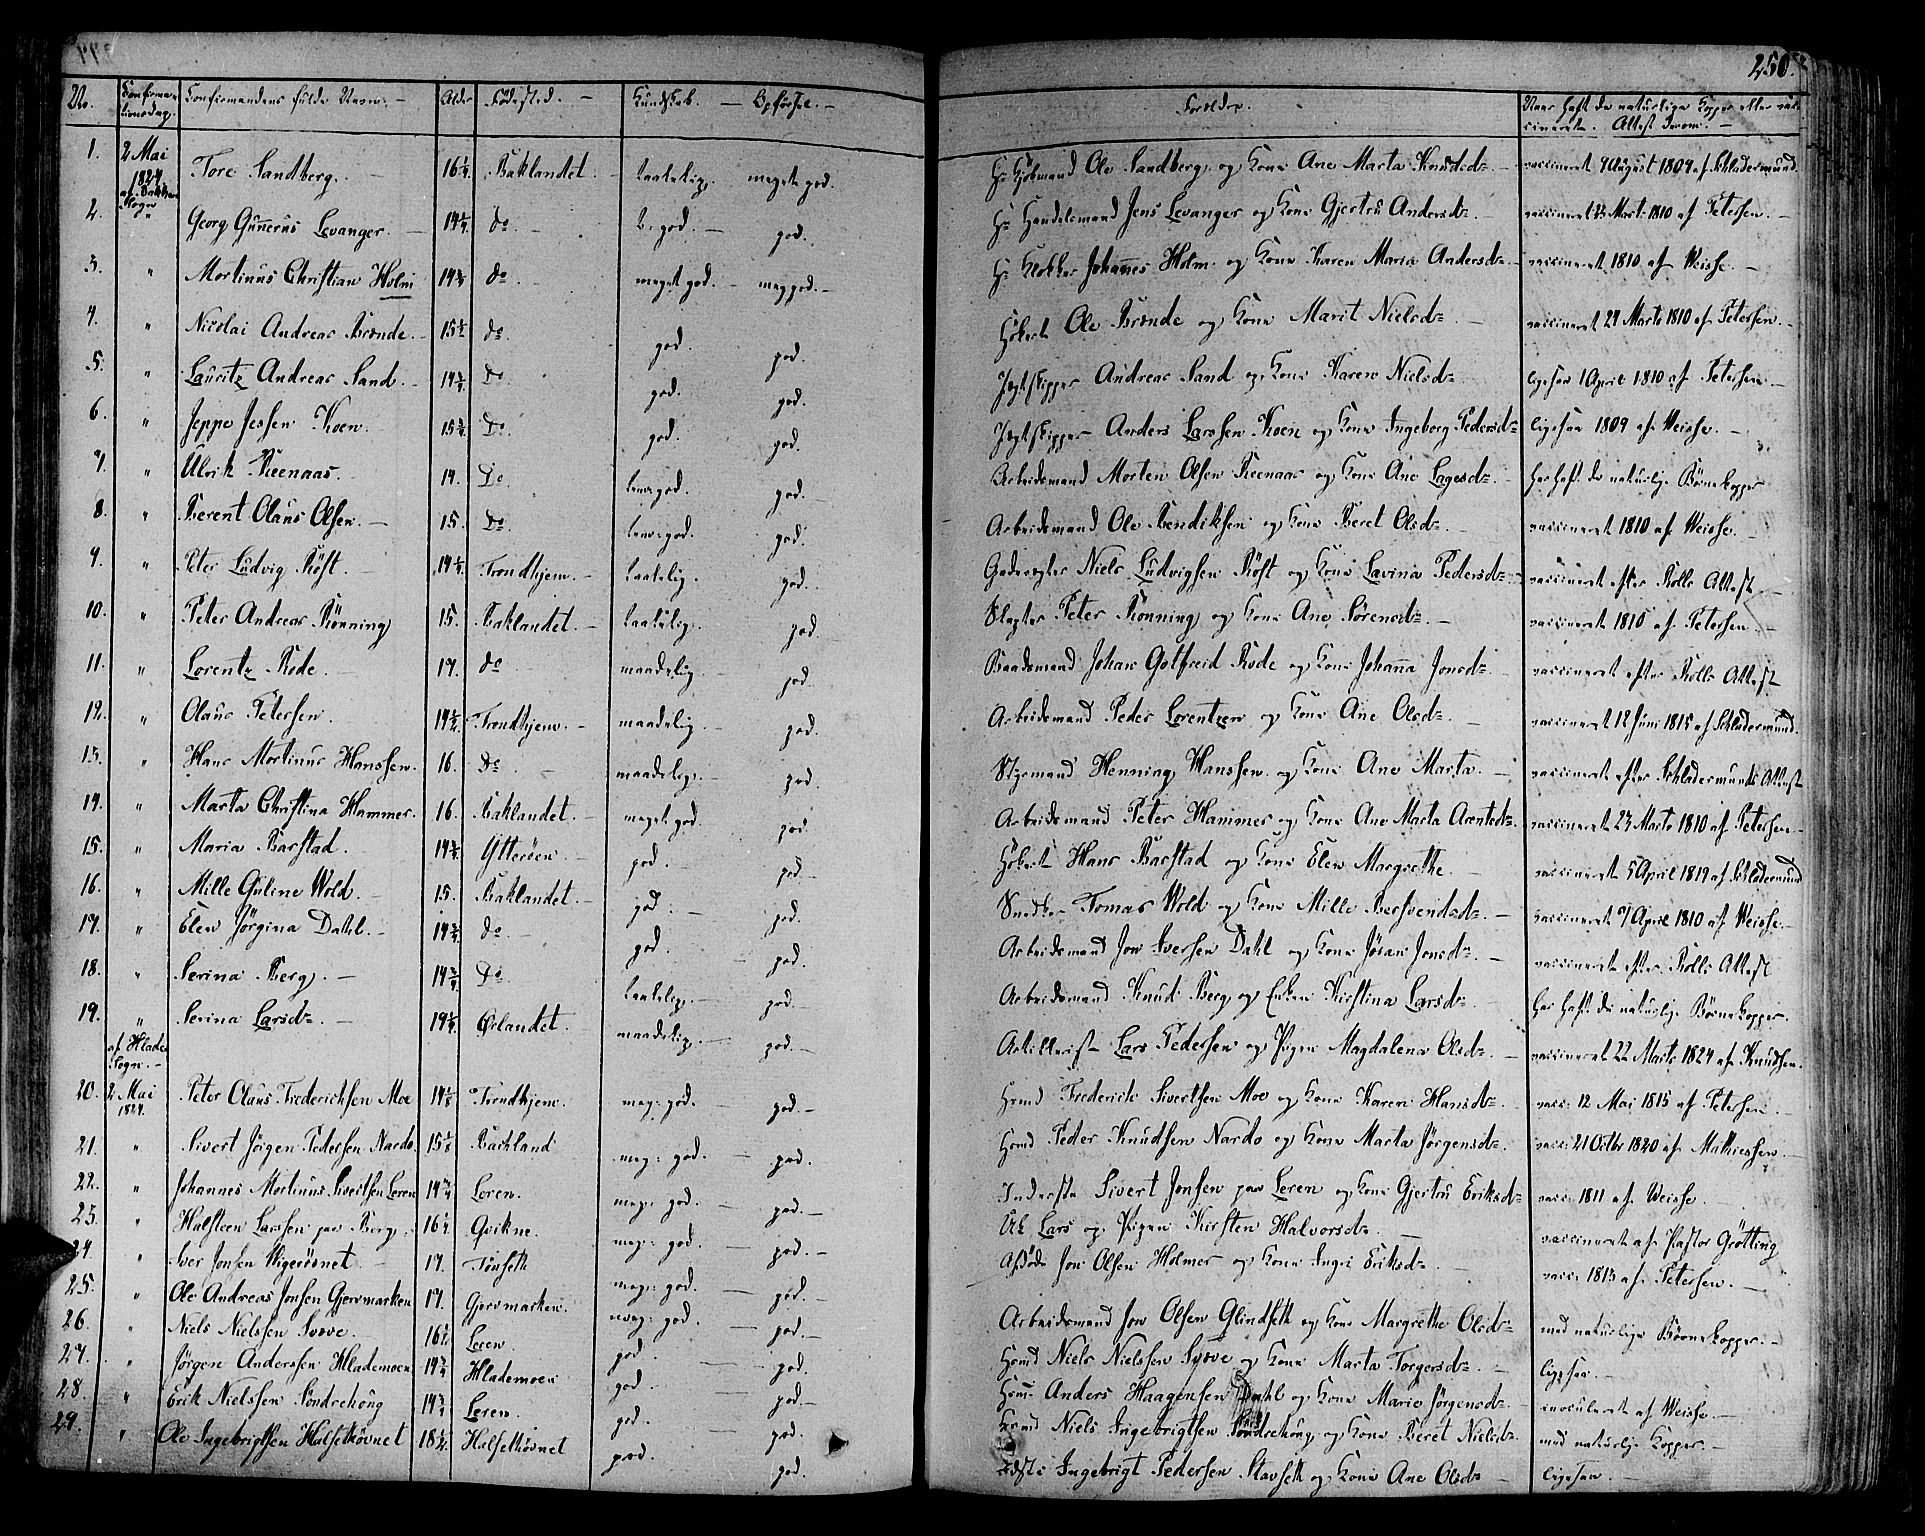 250.
No. Confirmationsdag. Confirmandens fulde Navn. Alder Fødested. Kundskab. Opførsel. Forældre. Naar haft de naturlige Kopper eller vaccineret. Attest derom.
1. 2 Mai 1824 af Bakke Sogn Tore Sandberg. 16¼ Baklandet. taalelig. meget god. Hr Kjøbmand Ole Sandberg og Kone Ane Marta Knudsdr vaccineret 9 August 1809 af Schladermund.
2. " Georg Gunnerus Levanger. 14¾ do b. god. god. Hr Handelsmand Jens Levanger og Kone Gjertru Andersdr vaccineret Marts 1810 af Petersen.
3. " Mortinus Christian Holm 14¾ do meget god. meg god. Hr Klokker Johannes Holm og Kone Karen Maria Andersdr vaccineret 1810 af Weisse.
4. " Nicolai Andreas Brønde. 15½ do god. god. Høkert Ole Brønde og Kone Marit Nielsdr vaccineret 29 Marts 1810 af Petersen.
5. " Lauritz Andreas Sand. 14¾ Do god. god. Jægtskipper Andreas Sand og Kone Karen Nielsdr ligesaa 1 April 1810 af Petersen.
6. " Jeppe Jessen Koen. 15¾ Do god. god. Jægtskipper Anders Larssen Koen og Kone Ingeborg Pedersdr ligesaa 1809 af Weisse.
7. " Ulrik Reenaas. 17. Do temgod. god. Arbeidsmand Morten Olsen Reenaas og Kone Ane Lagesdr har haft de naturlige Børnekopper
8. " Berent Olaus Olsen. 15. Do tem: god. god. Arbeidsmand Ole Bendiksen og Kone Beret Olsdr vaccineret 1810 af Weisse.
9. " Peter Ludvig Röst. 19¼ Trondhjem. taalelig. god. Niels Ludvigsen Röst og Kone Lavina Pedersdr vaccineret efter Rolls Attest
10. " Peter Andreas Rönning 15. Baklandet. taalelig. god. Slagter Peter Rönning og Kone Ane Sörensdr vaccineret 1810 af Petersen.
11. " Lorentz Rode. 17. do maadelig. god. Baadsmand Johan Gotfreid Rode og Kone Johanna Jonsdr vaccineret efter Rolls Attest
12. " Olaus Petersen. 14½ Trondhjem. maadelig. god. Arbeidsmand Peder Lorentzen og Kone Ane Olsdr vaccineret 12 Juni 1815 af Schladermund.
13. " Hans Mortinus Hanssen. 16. Do maadelig. god Styrmand Henning Hanssen og Kone Ane Marta. vaccineret efter Schladermunds Attest
14. " Marta Christina Hammer. 16. Baklandet. meget god. god. Arbeidsmand Peter Hammer og Kone Ane Marta Arentsdr vaccineret 27 Marts 1810 af Petersen.
15. " Maria Barstad. 14¾ Ytterøen. god. god. Høkert Hans Barstad og Kone Elen Margrethe. vaccineret 5 April 1819 af Schladermund
16. " Mille Guline Wold 15. Baklandet. god. god. Snedker Tomas Wold og Kone Mille Bersvendsdr vaccineret 7 April 1810 af Weisse.
17. " Elen Jörgina Dahl. 14¾ do god. god. Arbeidsmand Jon Iversen Dahl og Kone Jöran Jonsdr vaccineret efter Rolls Attest
18. " Serina Berg. 14¾ Do taalelig. god. Arbeidsmand Knud Berg og Enken Kirstina Larsdr har haft de naturlige Børnekopper.
19. " Serina Larsdr 19¼ Ørlandet. maadelig. god. Artillerist Lars Pedersen og Pigen Magdalena Olsdr vaccineret 22 Marts 1824 af Knudsen.
af Hlade Sogn.
20. 2 Mai 1824. Peter Olaus Frederichsen Moe 14⅛ Trondhjem. meg: god. god. Hmd Frederick Sivertsen Moe og Kone Karen Hansdr vacc: 12 Mai 1815 af Petersen.
21. " Sivert Jörgen Pedersen Nardo. 15⅛ Backland meg: god. god. Hmd Peder Knudsen Nardo og Kone Marta Jörgensdr vacc: 21 Octbr 1820 af Mathiessen.
22. " Johannes Mortinus Sivertsen Leren 14¾ Leren. meg: god. god. Inderste Sivert Jonsen paa Leren og Kone Gjertru Eriksdr vacc: 1811 af Weisse.
23. " Halsteen Larssen paa Berg. 16¼ Qvikne. meg: god. god. Lars og Pigen Kirsten Halvorsdr vaccineret af Pastor Grötting
24. " Iver Jonsen 17. Tønseth meg: god. god. Afdöde Jon Olsen Holmer og Kone Ingri Eriksdr vacc: 1813 af Petersen.
25. " Ole Andreas Jonsen Gjervmarken 17. Gjervmarken. meg: god. god. Arbeidsmand Jon Olsen Glindseth og Kone Margrethe Olsdr med naturlige Børnekopper.
26. " Niels Nielssen Sysve. 16½ Leren. god. god. Hmd Niels Nielssen Sysve og Kone Marta Torgersdr ligesaa.
27. " Jörgen Anderssen Hlademoen 14¾ Hlademoen god. god. Hmd Anders Haagensen Dahl og Kone Marie Jörgensdr inoculeret af Weisse.
28. " Erik Nielssen Söndrehoug 14¾ Leren. god. god. Hmd Niels Ingebrigtsen Söndrehoug og Kone Beret Nielsdr med naturlige Kopper.
29. " Ole Ingebrigtsen Halsethövnet 18½ Halsethövnet god. god. Ingebrigt Pedersen Stavseth og Kone Ane Olsdr ligesaa.